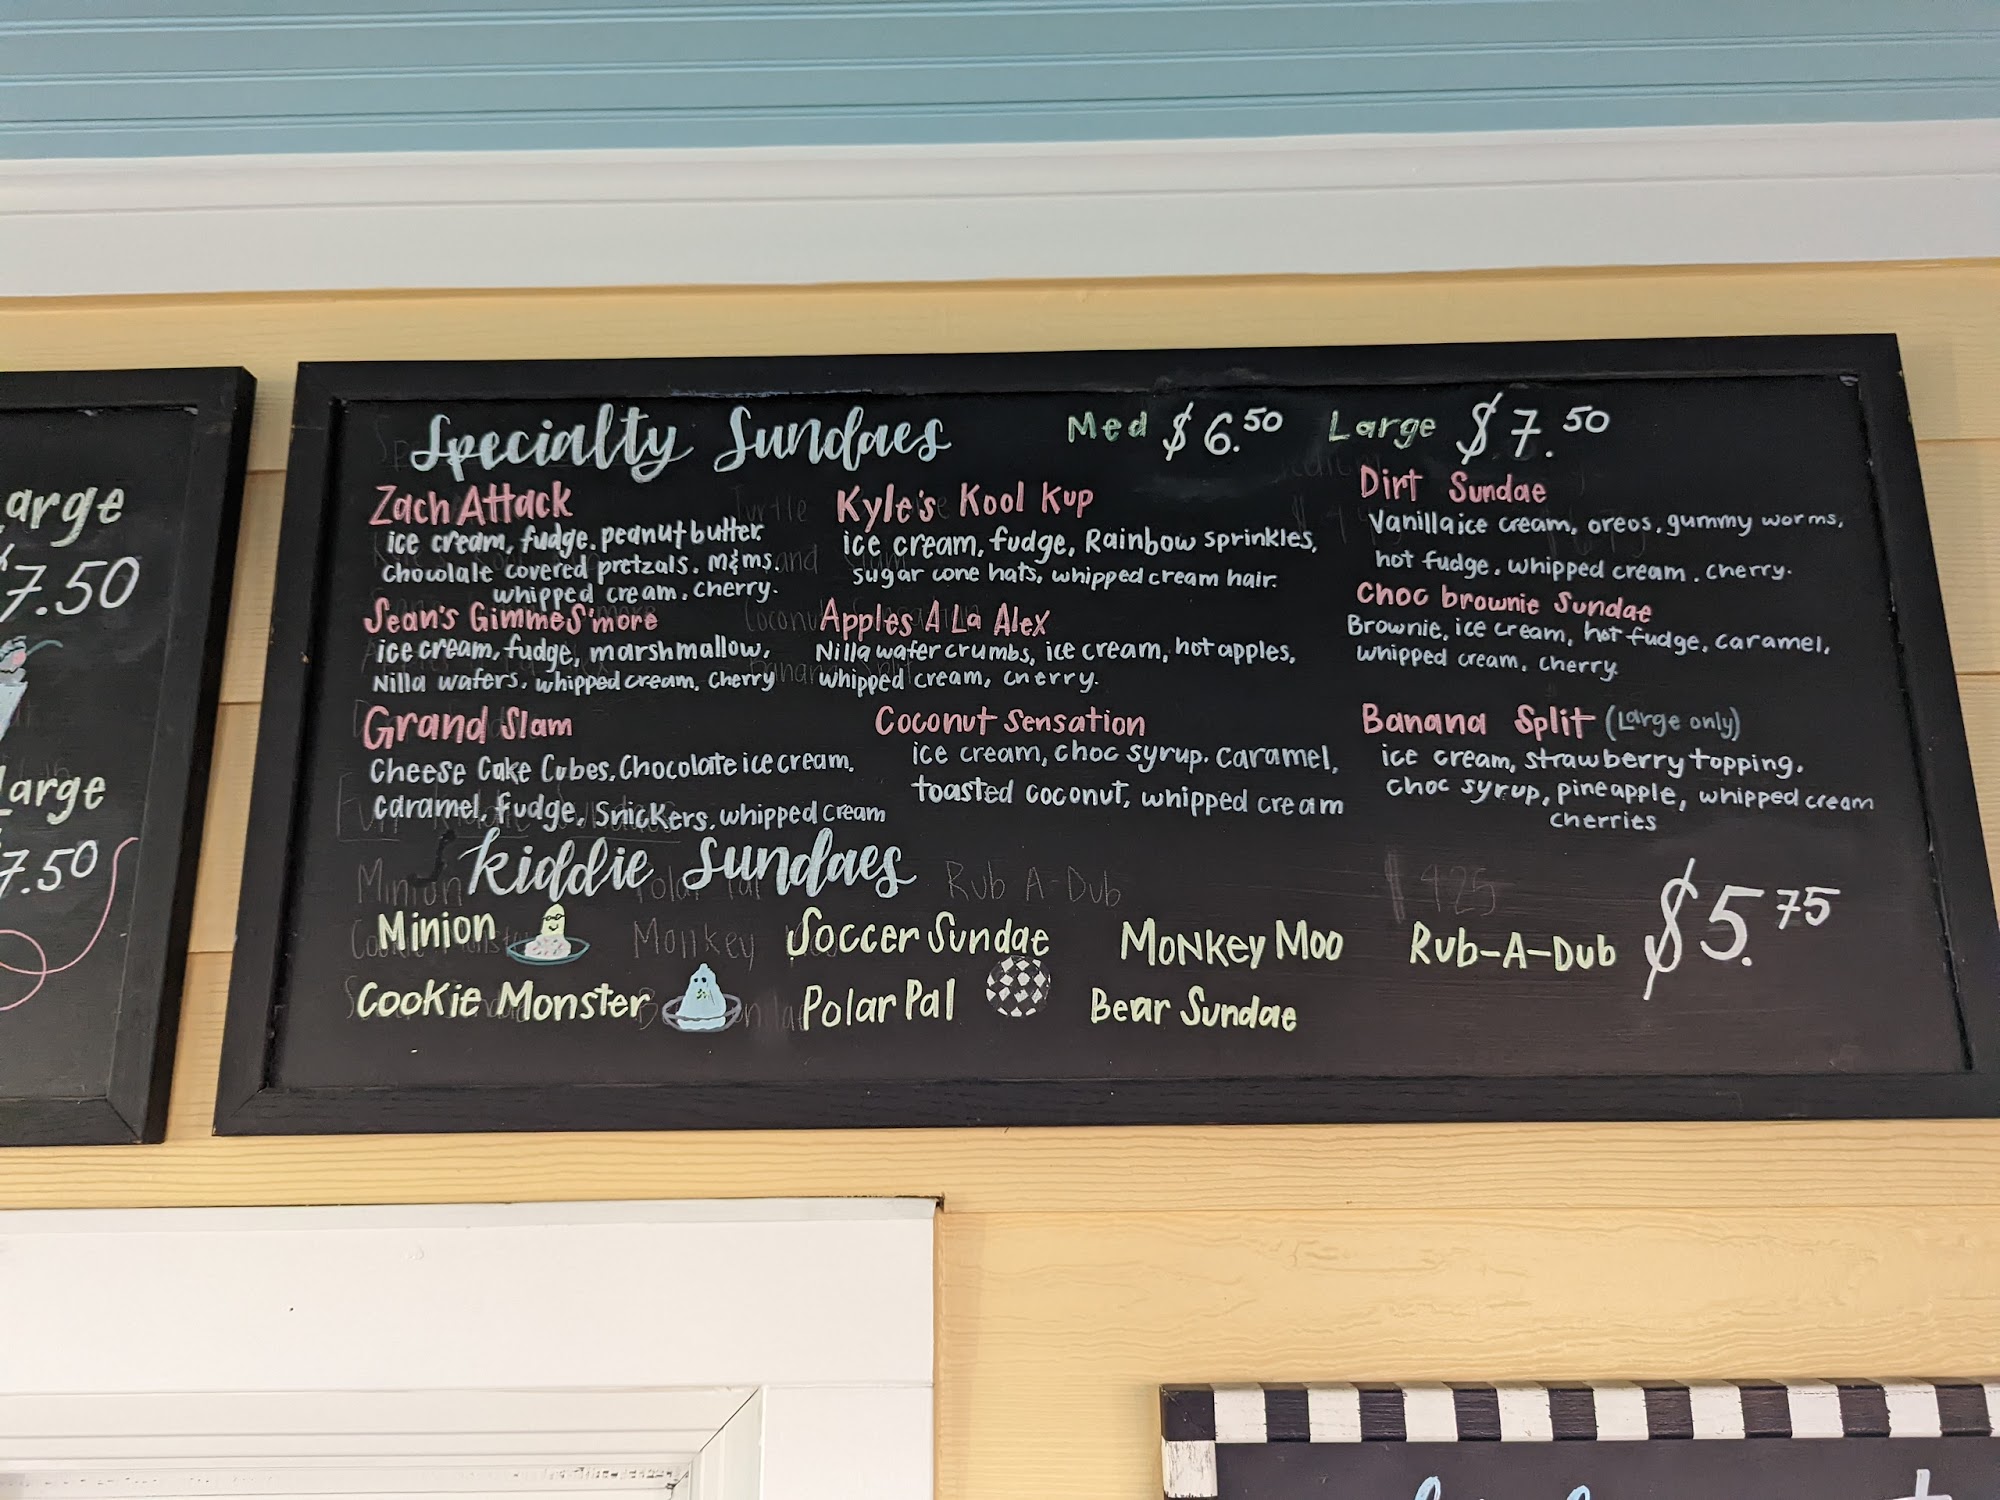 Specialty Sundaes Med $6.50 Large $7.50
Zach Attack
ice cream, fudge, peanut butter.
chocolate covered pretzals. m&ms.
whipped cream. cherry.
Sean's Gimme S'more
ice cream, fudge, marshmallow,
Nilla wafers. whipped cream. cherry
Grand Slam
Cheese Cake Cubes. Chocolate ice cream.
caramel, fudge, Snickers. whipped cream
Kyle's Kool Kup
ice cream, fudge, Rainbow sprinkles,
sugar cone hats, whipped cream hair.
Apples A La Alex
Nilla wafer crumbs, ice cream, hot apples,
whipped cream, cherry.
Coconut Sensation
ice cream, choc syrup. caramel,
toasted coconut, whipped cream
Dirt Sundae
Vanilla ice cream, oreos, gummy worms,
hot fudge, whipped cream. cherry.
Choc brownie Sundae
Brownie, ice cream, hot fudge, caramel,
whipped cream, cherry.
Banana Split (Large only)
ice cream, strawberry topping.
choc syrup, pineapple, whipped cream
cherries
Kiddie Sundaes
Minion Soccer Sundae Monkey Moo Rub-A-Dub $5.75
Cookie Monster Polar Pal Bear Sundae
arge
7.50
Large
7.50